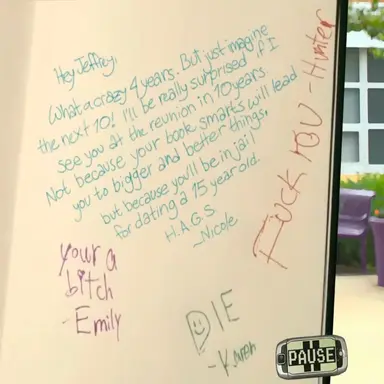 Hey Jeffrey,
What a crazy 4 years. But just imagine
the next 10! I'll be really surprised if I
see you at the reunion in 10 years.
Not because your book smarts will lead
you to bigger and better things,
but because you'll be in jail
for dating a 15 year old.
H.A.G.S.
-Nicole
Fuck you -Hunter
your a
bitch
-Emily
DIE
-Karen
PAUSE